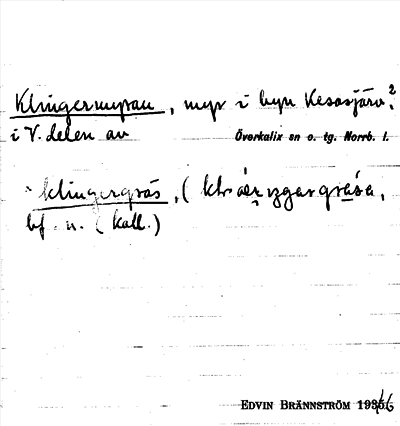 Klingermyran, myr i byn Kesasjärv,²
i V. delen av Överkalix sn o. tg. Norrb. l.
klingergräs, (
bf. n. (Kall.)
EDVIN BRÄNNSTRÖM 1935/46